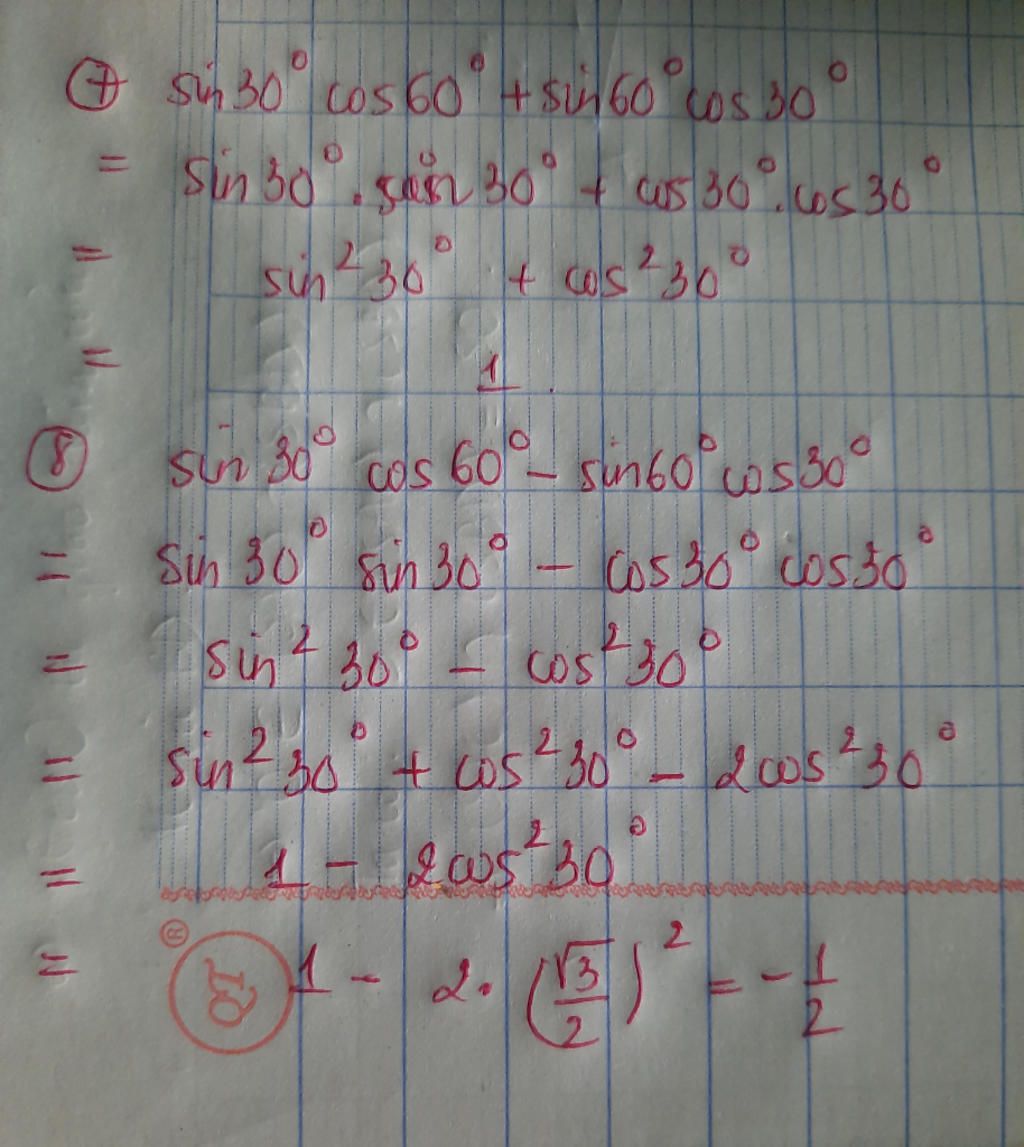 ⑦ sin30° cos60° + sin60° cos30°
= sin30° . sin30° + cos30° . cos30°
= sin²30° + cos²30°
= 1.
⑧ sin30° cos60° − sin60° cos30°
= sin30° sin30° − cos30° cos30°
= sin²30° − cos²30°
= sin²30° + cos²30° − 2cos²30°
= 1 − 2cos²30°
= 1 − 2. (√3/2)² = −1/2